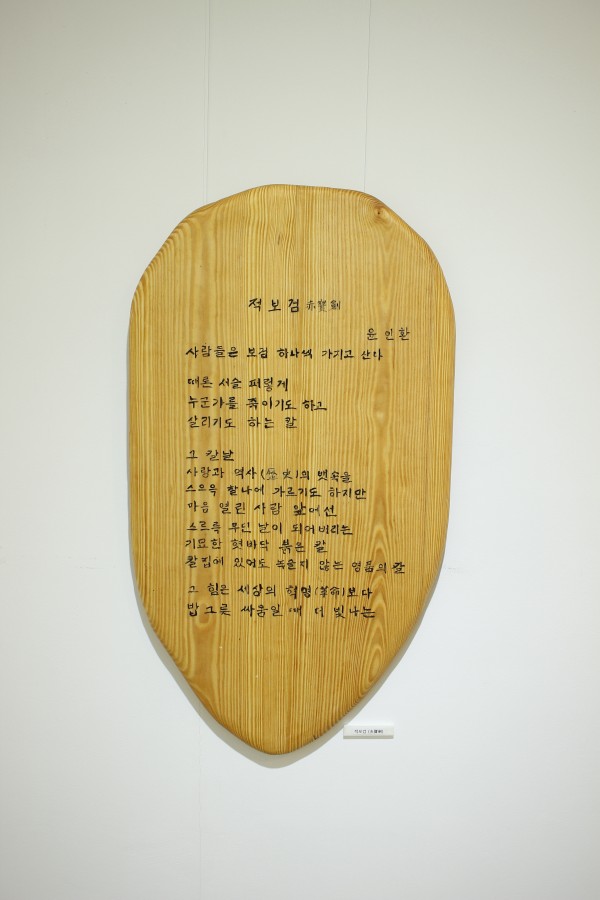 적보검 赤寶劍
윤인환
사람들은 보검 하나씩 가지고 산다
때론 서슬 퍼렇게
누군가를 죽이기도 하고
살리기도 하는 칼
그 칼날
사랑과 역사(歷史)의 뱃속을
스으윽 찰나에 가르기도 하지만
마음 열린 사람 앞에선
스르륵 무딘 날이 되어버리는
기묘한 혓바닥 붉은 칼
칼집에 있어도 녹슬지 않는 영롱의 칼
그 힘은 세상의 혁명(革命)보다
밥그릇 싸움일 때 더 빛나는
적보검 (赤寶劍)